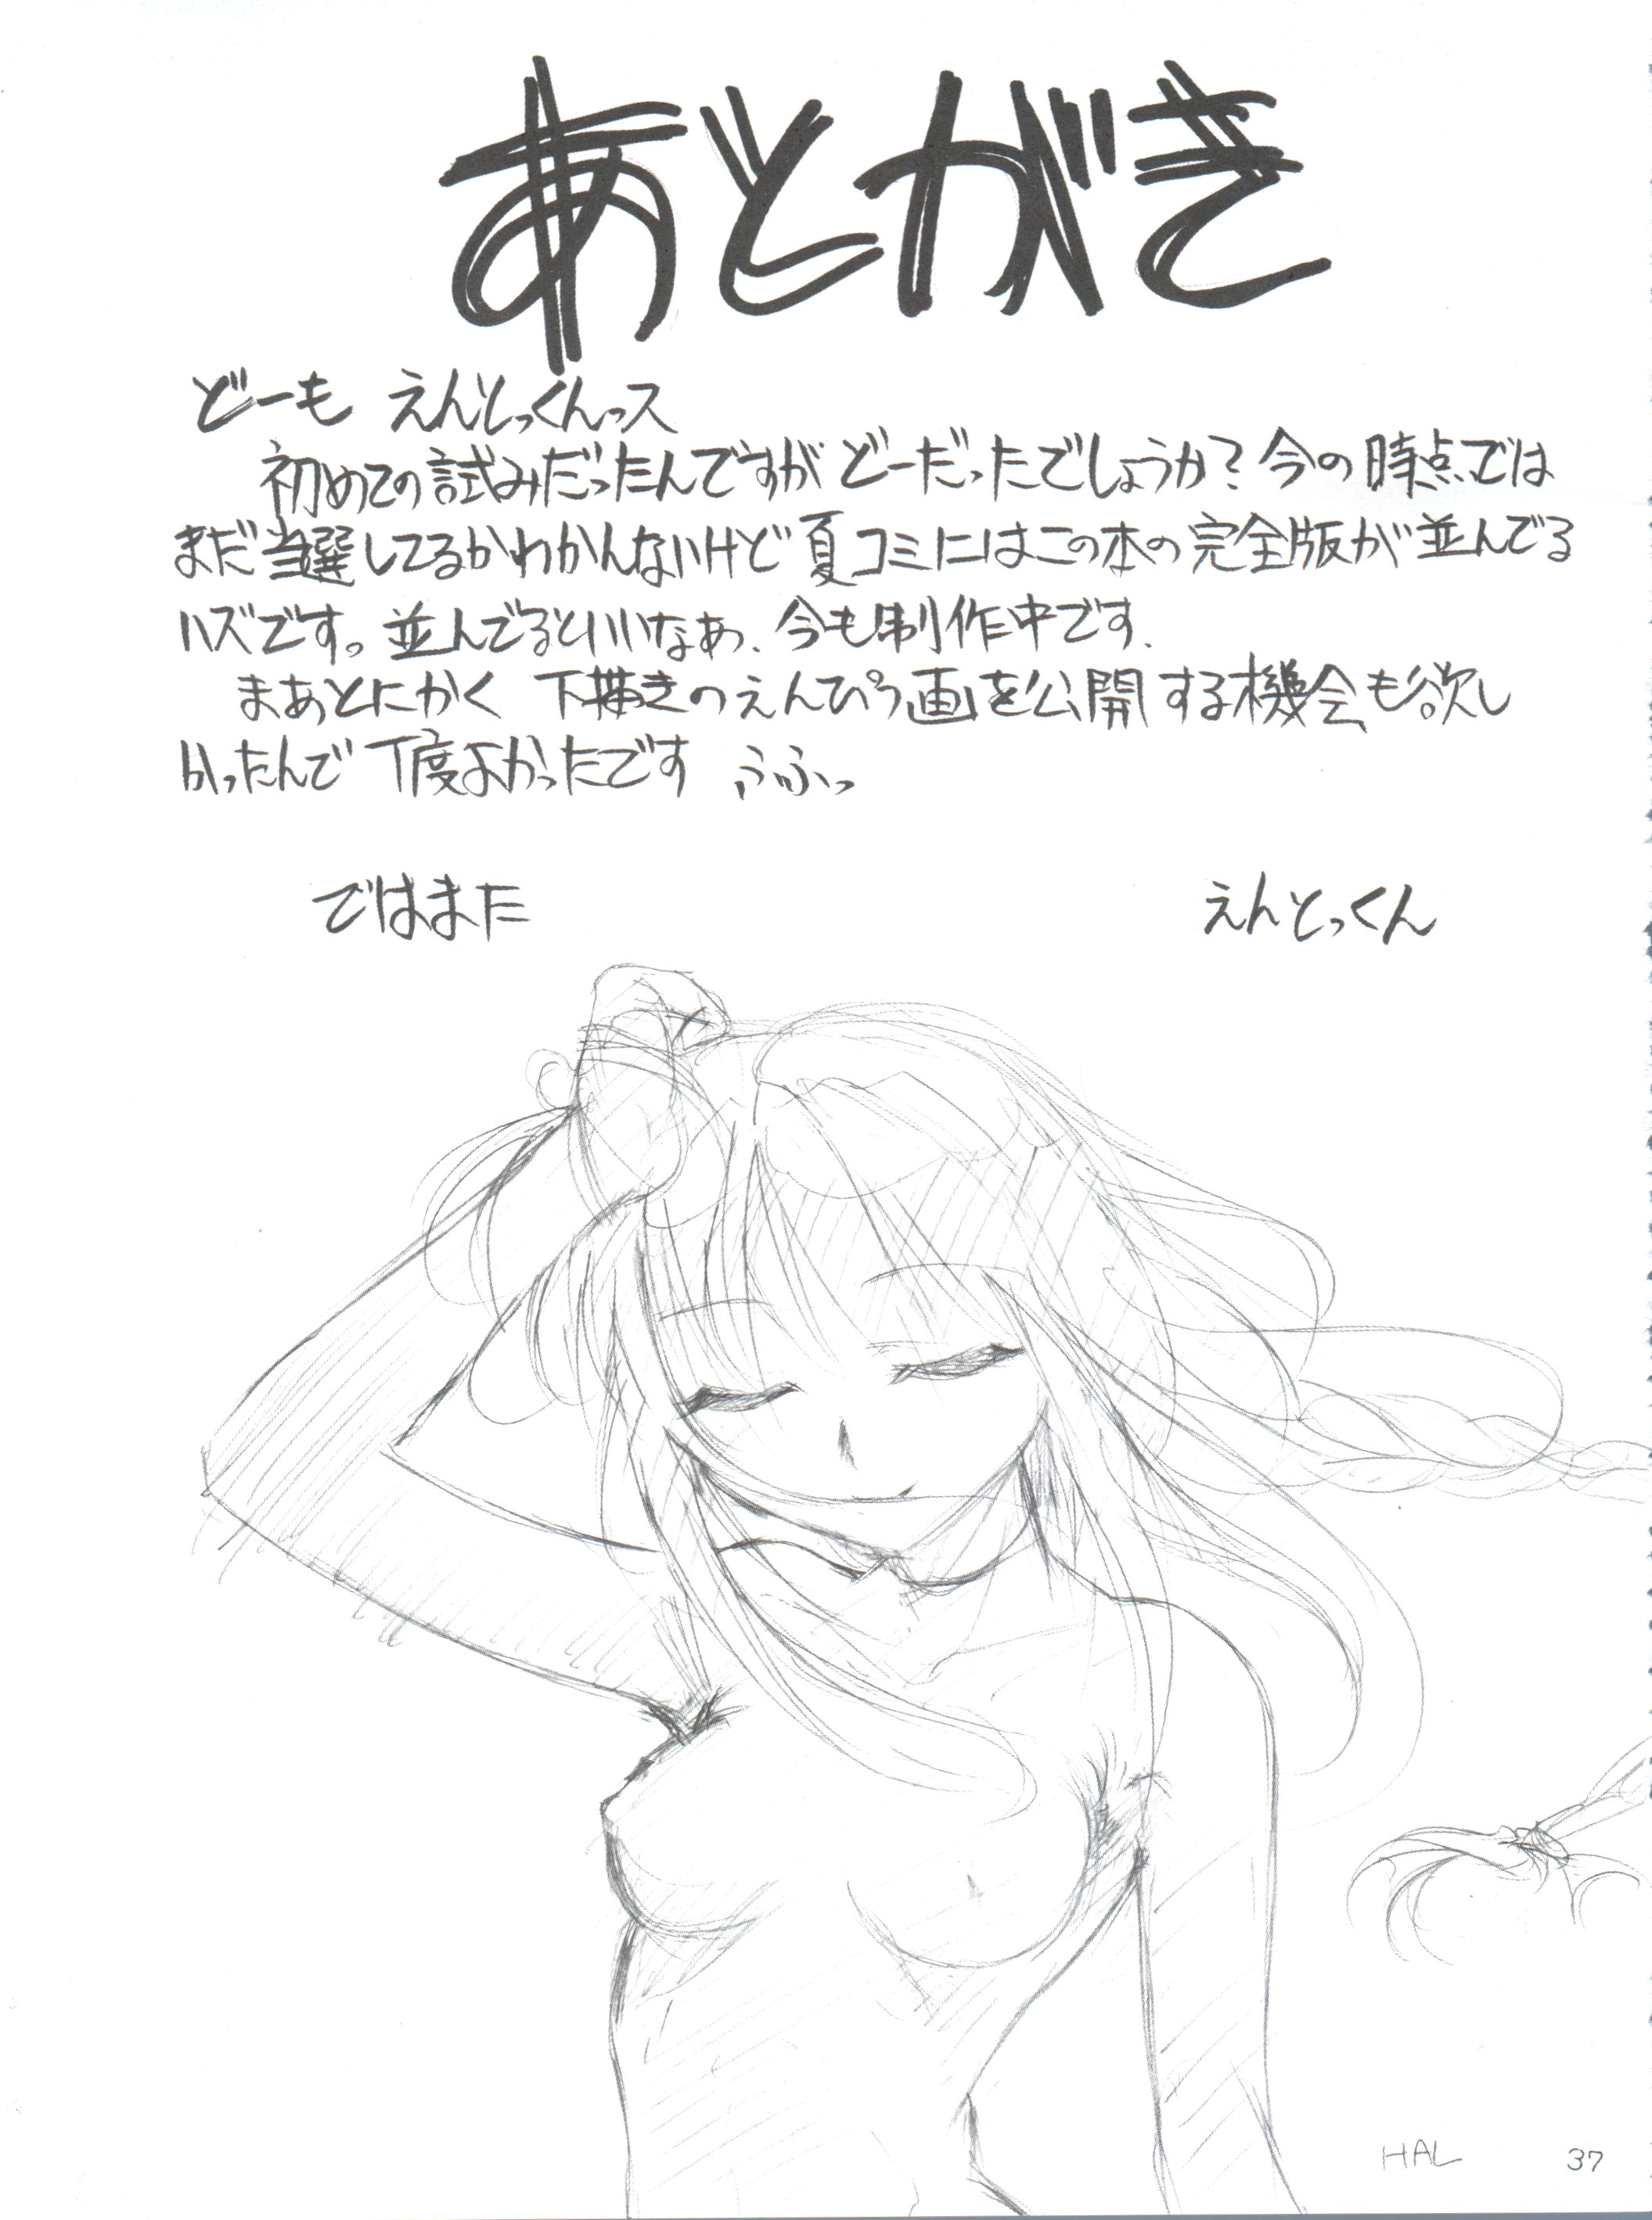 あとがき
どーも えんとっくんっス
初めての試みだったんですが どーだったでしょうか? 今の時点では
まだ当選してるかわかんないけど 夏コミにはこの本の完全版が並んでる
ハズです。並んでるといいなあ、今も制作中です、
まあとにかく 下描きのえんぴつ画を公開する機会も欲し
かったんで 丁度よかったです うふふっ
ではまた えんとっくん
HAL 37